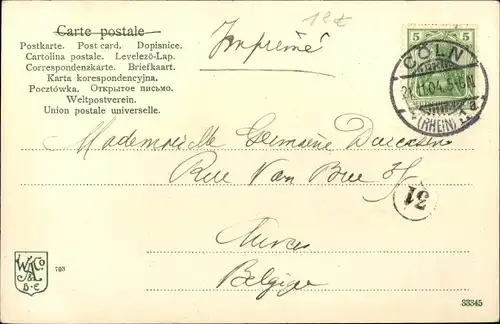 Carte postale
12€
Imprimé
Postkarte. Post card. Dopisnice.
Cartolina postale. Levelező-Lap.
Correspondenzkarte. Briefkaart.
Karta korespondencyjna.
Pocztówka. Открытое письмо.
Weltpostverein.
Union postale universelle.
5 5
CÖLN
11.04.5-6N
(RHEIN) 1 a
Mademoiselle Germaine
Rue Van
31
Belgique
W.&Co
B-E
703
33345